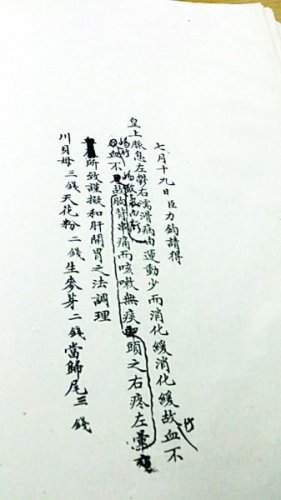 七月十九日臣力鈞請得
皇上脈息左鬱右濡滑病由運動少而消化緩消化緩故血不
血不胸背串痛而咳嗽無痰頭之右疼左暈
所致謹擬和肝開胃之法調理
川貝母三錢天花粉二錢生麥芽二錢當歸尾三錢